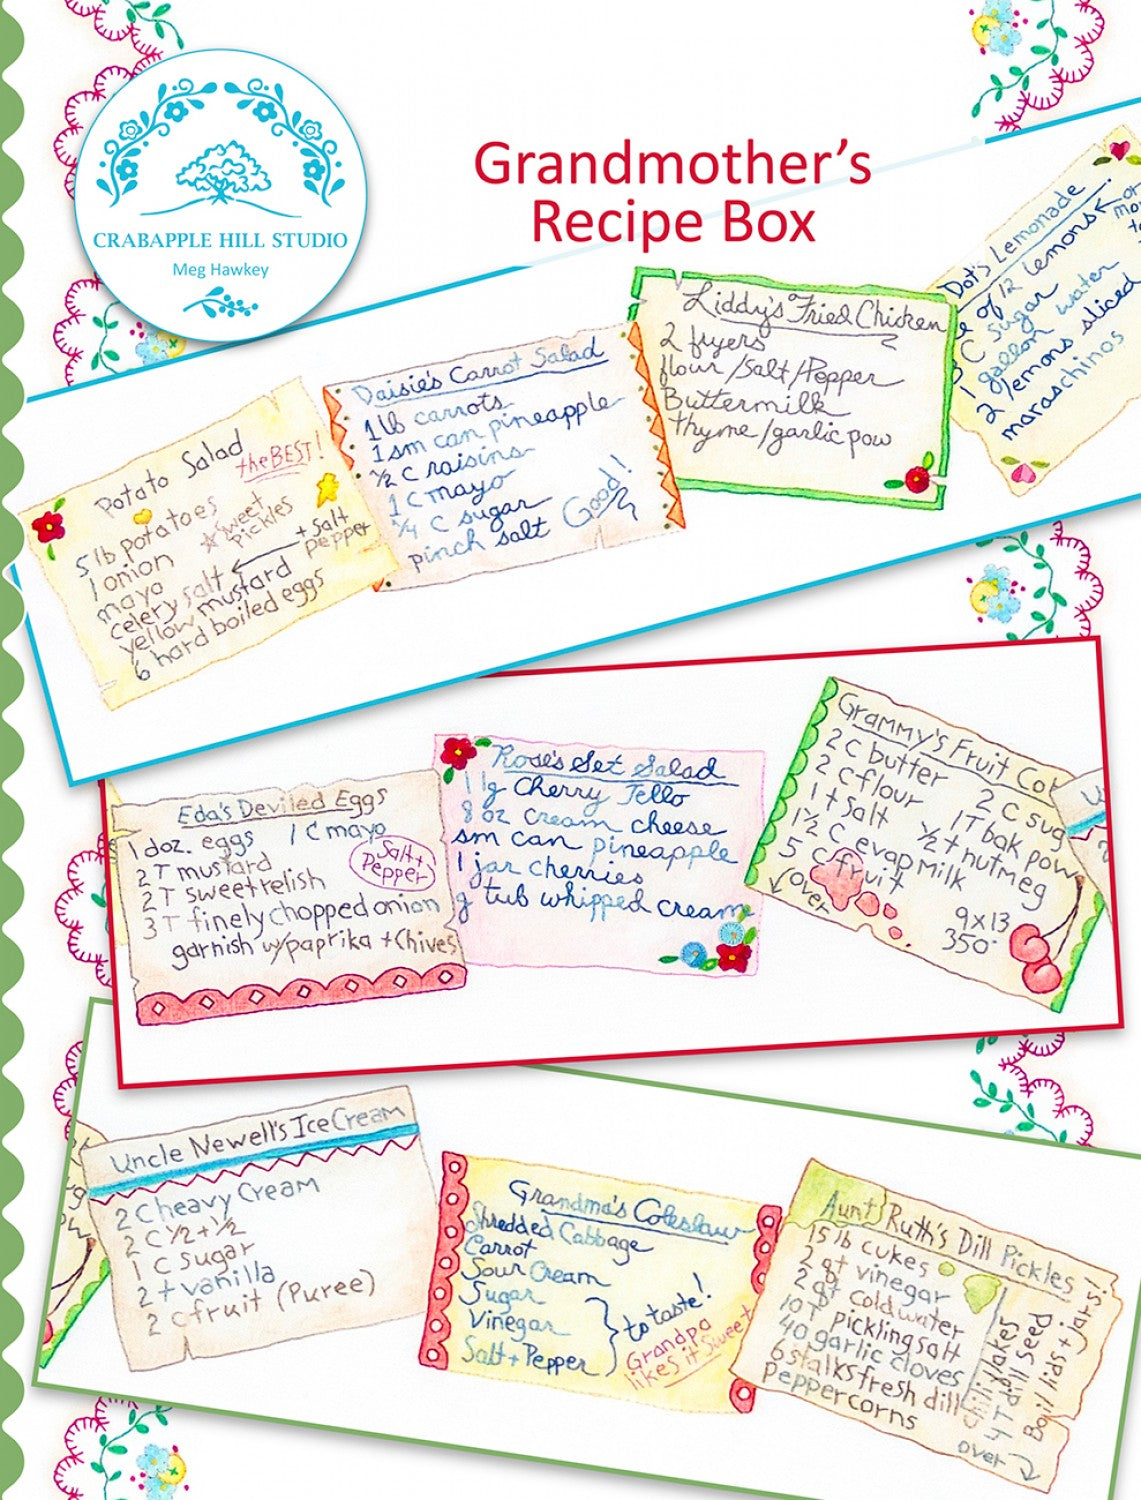 CRABAPPLE HILL STUDIO
Meg Hawkey
Grandmother's
Recipe Box
Potato Salad
the BEST!
5 lb potatoes
1 onion
sweet
pickles
mayo
celery salt
+ Salt
pepper
yellow mustard
6 hard boiled eggs
Daisie's Carrot Salad
1 lb carrots
1 sm can pineapple
1/2 C raisins
1 C mayo
1/4 C sugar
pinch salt
Good!
Liddy's Fried Chicken
2 fryers
flour/Salt/Pepper
Buttermilk
thyme/garlic pow
Dot's Lemonade
of 12 lemons
or
C Sugar
1 gallon water
2 lemons sliced
maraschinos
Eda's Deviled Eggs
1 doz. eggs 1 C mayo
2 T mustard
Salt +
Pepper
2 T sweet relish
3 T finely chopped onion
garnish w/paprika + Chives
Rose's Set Salad
1 lg Cherry Jello
8 oz cream cheese
sm can pineapple
1 jar cherries
g tub whipped cream
Grammy's Fruit Cob
2 C butter 2 C sug
2 C flour 1 T bak pow
1 t Salt 1/2 t nutmeg
1 1/2 C evap milk
5 C fruit
over
9x13
350°
Uncle Newell's Ice Cream
2 C heavy Cream
2 C 1/2 + 1/2
1 C Sugar
2 t vanilla
2 C fruit (Puree)
Grandma's Coleslaw
Shredded Cabbage
Carrot
Sour Cream
Sugar
Vinegar
Salt + Pepper
to taste!
Grandpa
likes it Sweet
Aunt Ruth's Dill Pickles
15 lb cukes
2 qt vinegar
2 qt cold water
10 T pickling salt
40 garlic cloves
6 stalks fresh dill
peppercorns
chili flakes
4 T dill seed
Boil lids + jars!
over